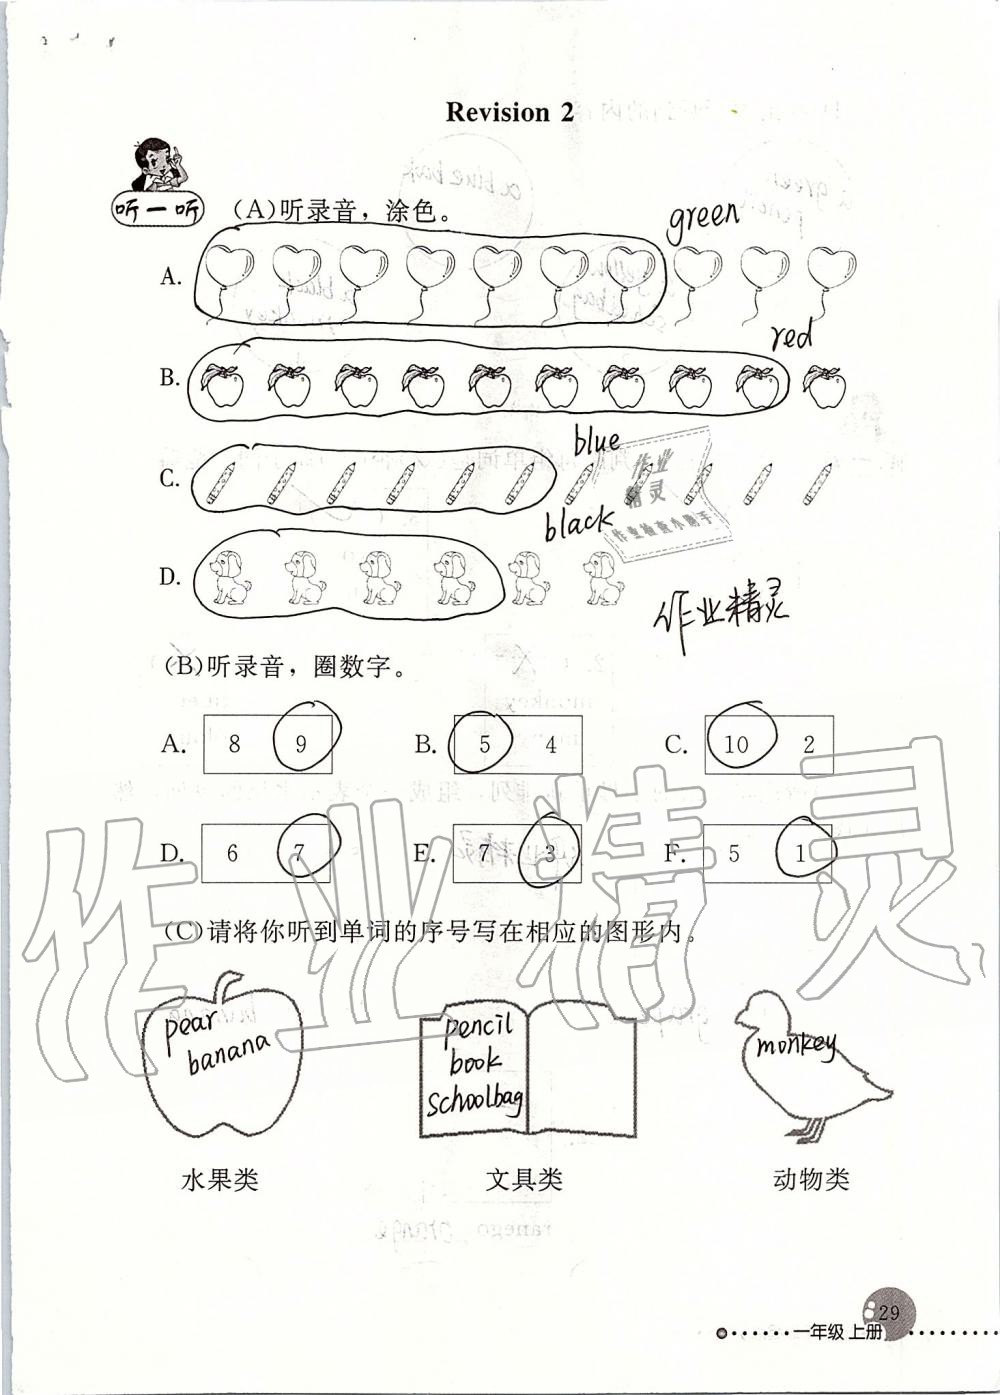 Revision 2
听一听
(A)听录音，涂色。
green
A.
red
B.
blue
C.
作业
精灵
作业检查小助手
black
D.
作业精灵
(B)听录音，圈数字。
A. 8 9 B. 5 4 C. 10 2
D. 6 7 E. 7 3 F. 5 1
作业精灵
(C)请将你听到单词的序号写在相应的图形内。
pear
banana
pencil
book
schoolbag
monkey
水果类 文具类 动物类
29
一年级 上册